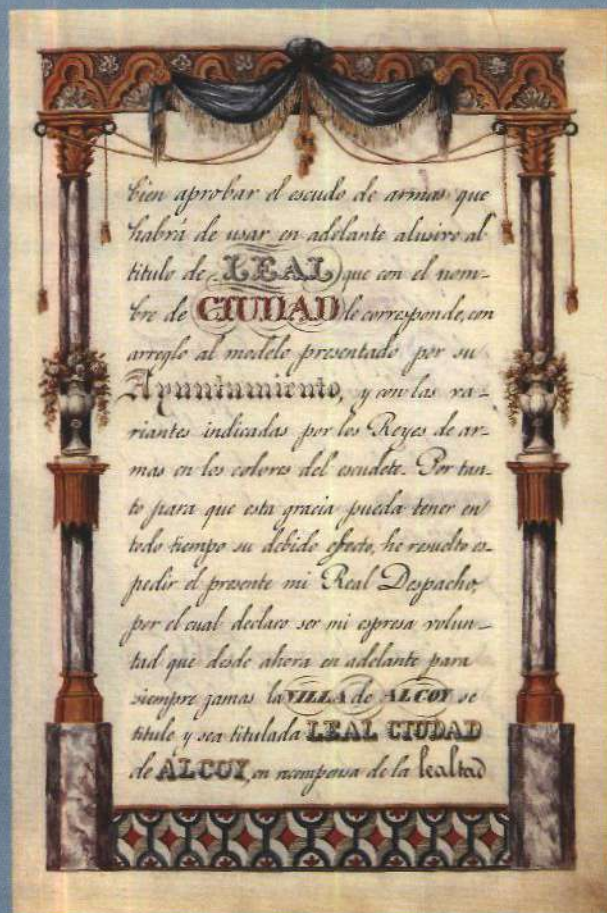 bien aprobar el escudo de armas que
habrá de usar en adelante alusivo al
titulo de LEAL que con el nom-
bre de CIUDAD le corresponde, con
arreglo al modelo presentado por su
Ayuntamiento, y con las va-
riantes indicadas por los Reyes de ar-
mas en los colores del escudete. Por tan-
to para que esta gracia pueda tener en
todo tiempo su debido efecto, he resuelto es-
pedir el presente mi Real Despacho,
por el cual declaro ser mi espresa volun-
tad que desde ahora en adelante para
siempre jamas la VILLA de ALCOY se
titule y sea titulada LEAL CIUDAD
de ALCOY, en recompensa de la lealtad